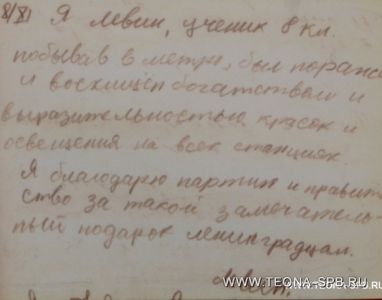 8/XI Я Левин, ученик 8 кл.
побывав в метро, был поражен
и восхищен богатством и
выразительностью красок и
освещения на всех станциях.
Я благодарю партию и правитель
ство за такой замечатель-
ный подарок ленинградцам.
WWW.TEONA-SPB.RU